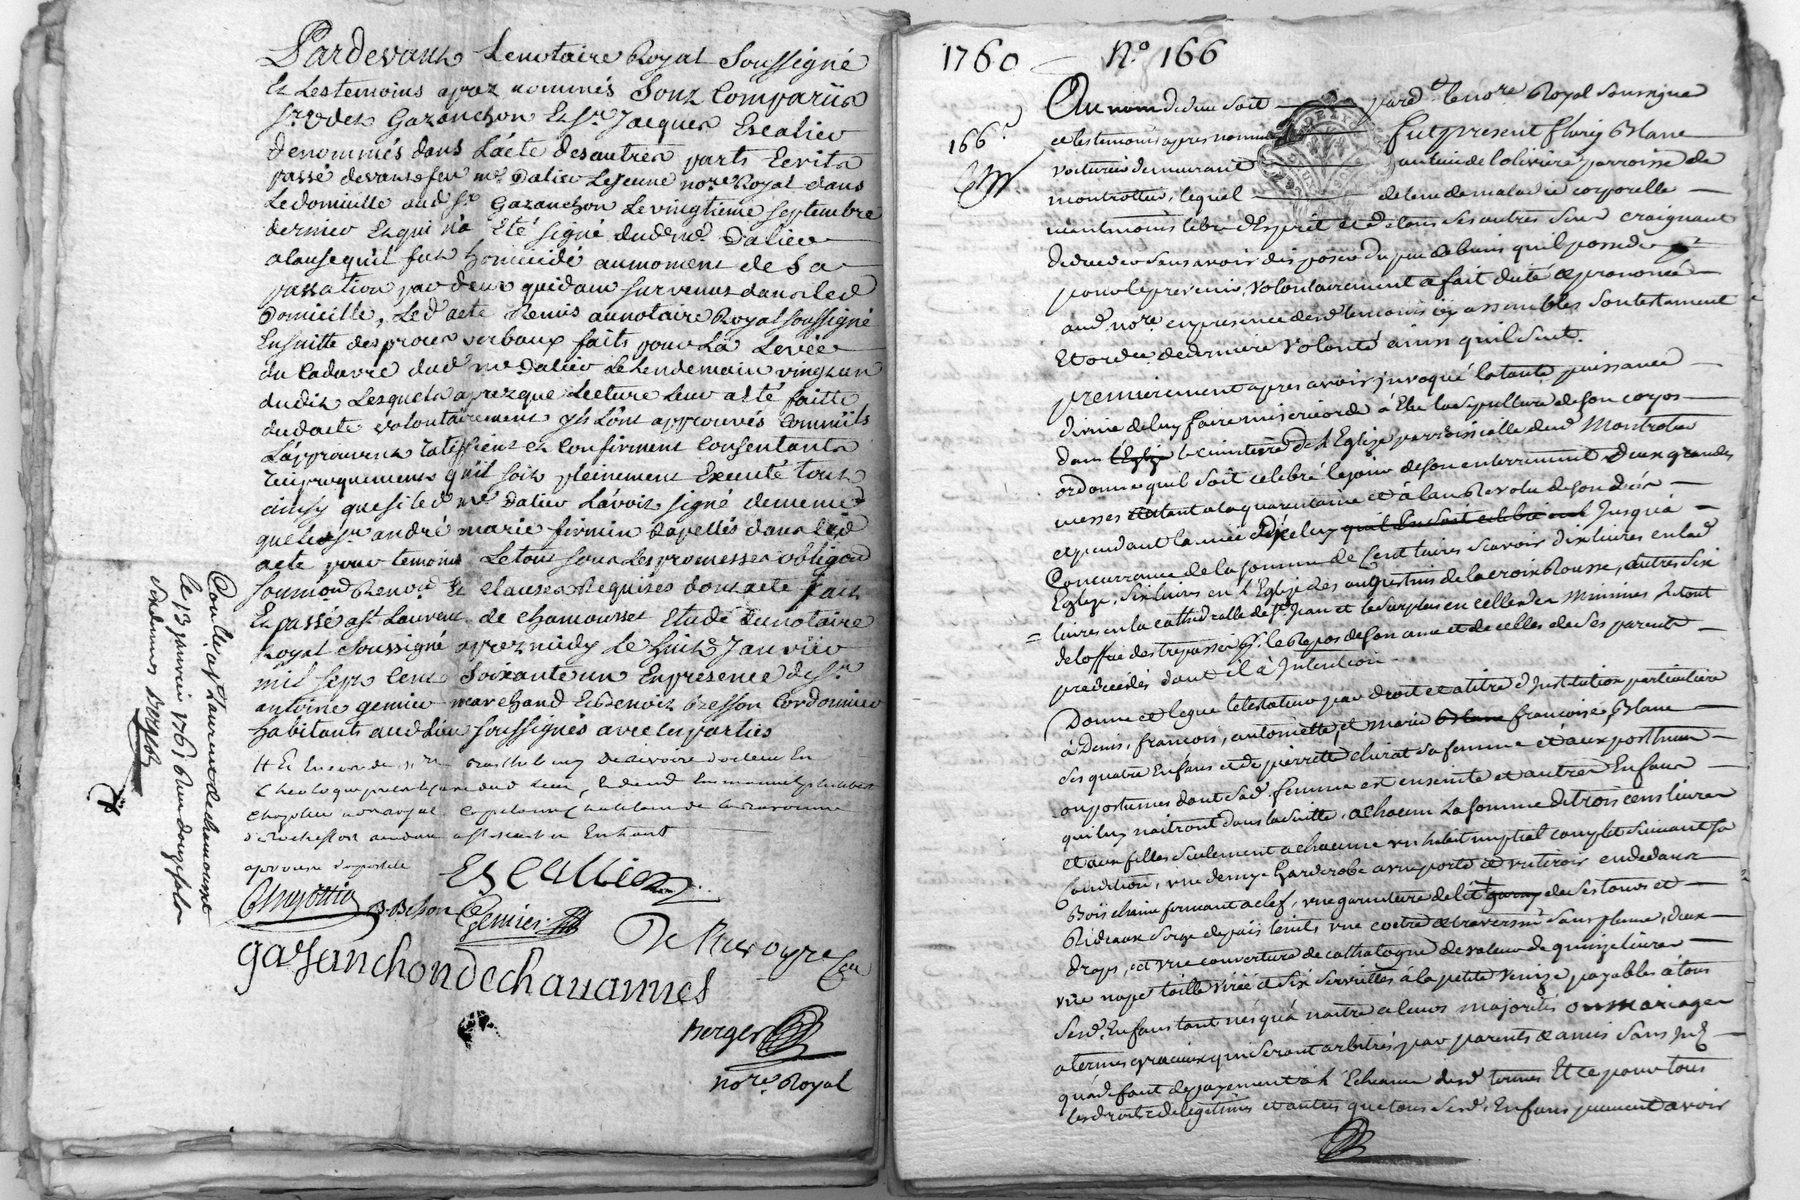 Pardevant Le notaire Royal Soussigné
Et Les temoins aprez nommés Sont Comparüs
Gazanchon Et Sr Jacques Escalier
denommés dans L'acte des autres parts Ecrits
passé devant feu me Dalier Le jeune nore Royal dans
Le domicille dud Sr Gazanchon Le vingtieme Septembre
dernier Et qui n'a Eté Signé dud me Dalier
a Cause qu'il fut homicidé au moment de Sa
passation par deux quidam Survenus dans led
Domicille, Led acte Remis au notaire Royal soussigné
Ensuitte des procès verbaux faits pour La Levée
du Cadavre dud me Dalier Le Lendemain vingt un
dudit Lesquels aprez que Lecture Leur a Eté faitte
dud acte volontairement ils L'ont approuvés Comme ils
L'approuvent ratiffient et Confirment Consentants
reciproquement qu'il soit pleinement Executé tout
ainsy que si led me Dalier L'avoit Signé de meme
que Les Srs andré marie firmin Rapellés dans led
acte pour temoins Le tout sous Les promesses obligaon
Soumon Renon Et Clauses Requises dont acte fait
Et passé a St Laurent de Chamousset Etude du notaire
Royal Soussigné aprez midy Le huit Janvier
mil Sept Cent Soixante un En presence de Sr
antoine genier marchand Et Benoit Besson Cordonnier
habitants aud Lieu Soussignés avec Les parties
Escallier
B. Besson Genier
De Rivoyre
gazanchon de chavannes
Berger
nore Royal
Controllé a St Laurent de chamousset
le 13 janvier 1761 Reçu douze sols
1760 No. 166
166e
Au nom de dieu Soit pardt le nore Royal Soussigné
et les temoins apres nommés fut present fleury Blanc
voiturier demurant au lieu de lolivière parroisse de
montrottier, lequel detenu de maladie corporelle
néantmoins libre d'Esprit et de tous Ses autres Sens craignant
de deceder Sans avoir disposé du peu de biens qu'il possede
pour le prevenir, volontairement a fait dicté & prononcé
aud nore en presence desd temoins icy assemblés Son testament
Et ordre de derniere Volonté ainsi quil Suit.
premierement apres avoir invoqué la toute puissance
divine de luy faire misericorde à Elu la Sepulture de Son corps
dans l'Eglise le cimetiere de l'Eglise parroissialle dud Montrotier
ordonne qu'il Soit celebré le jour de Son enterrement deux grandes
messes autant a la quarantaine et à l'an Revolu de Son décès
et pendant l'année d'icelluy jusqu'à
Concurrance de la Somme de Cent livres Scavoir dix livres en lad
Eglise, Six livres en l'Eglise des augustins de la croix Rousse, autres Six
livres en la cathedralle de St Jean et le Surplus en celle des Minimes, le tout
de l'office des trepassés pr. le Repos de Son ame et de celles de Ses parents
predecedés dont il à Intention
Donne et legue le testateur par droit et a titre d'Institution particuliere
à Denis, françois, antoinette, et marie françoise Blanc
Ses quatre Enfans et de pierrette Clurat Sa femme et aux posthume
ou postumes dont Sad. femme est enceinte et autres Enfans
qui luy naitront dans la Suitte, a chacun La Somme de trois cens livres
et aux filles Seulement a chacune un habit nuptial complet Suivant Sa
Condition, une demye Garderobe a une porte et un tiroir en dedans
Bois chaine fermant a clef, une garniture de lit de Ses tours et
Rideaux Serge de païs teints une coetre & traversin Sans plume, deux
draps, et une couverture de cathalogne de valeur de quinze livres
une nape toille virée et Six Serviettes à la petite Venise payables à tous
Sesd. Enfans tant nés qu'à naitre a leurs majorités ou mariages
a termes gracieux qui Seront arbitrés par parents & amis Sans Int.
qu'à deffaut de payement à l'Echeance desd termes Et ce pour tous
les droits de legitimes et autres que tous Sesd. Enfans peuvent avoir